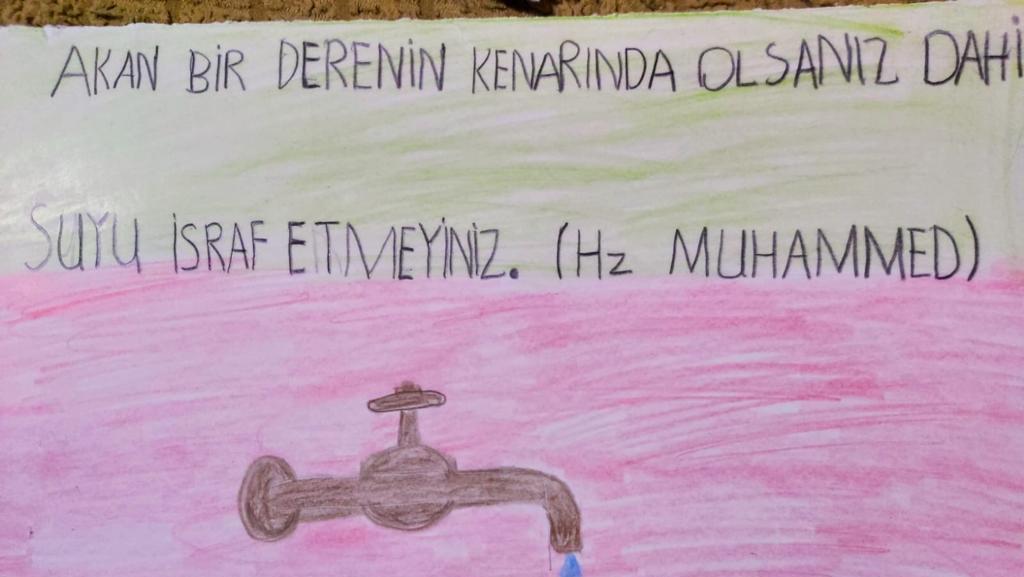 AKAN BİR DERENİN KENARINDA OLSANIZ DAHİ
SUYU İSRAF ETMEYİNİZ. (Hz MUHAMMED)